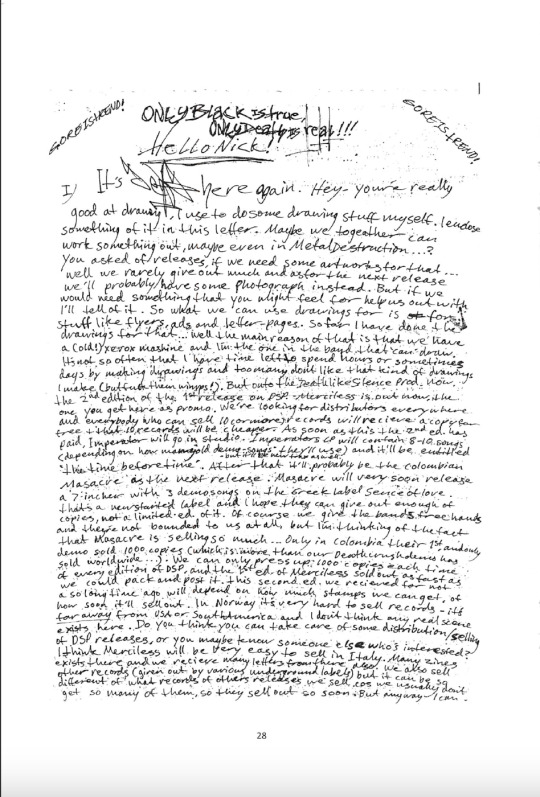 GORE IS TREND!
ONLY Black is true,
ONLY Death is real!!!
GORE IS TREND!
Hello Nick!
I) It's here again. Hey - you're really
good at drawing, I use to do some drawing stuff myself. I enclose
something of it in this letter. Maybe we togeather can
work something out, maybe even in Metal Destruction...?
You asked of releases, if we need some artworks for that...
well we rarely give out much and as for the next release
we'll probably have some photograph instead. But if we
would need something that you might feel for help us out with
I'll tell of it. So what we can use drawings for is for
stuff like flyers, ads and letter-pages. So far I have done the
drawings for that... Well the main reason of that is that we have
a (old!) xerox mashine and I'm the one in the band that can draw.
It's not so often that I have time left to spend hours or sometimes
days by making drawings and too many don't like that kind of drawings
I make (but fuck them wimps!). But onto Deathlike Silence Prod. now.
the 2nd edition of the 1st release on DSP. Merciless is out now, the
one you get here as promo. We're looking for distributors everywhere
and everybody who can sell 10 (or more) records will recieve a copy for
free + that 10 records will be cheaper. As soon as this the 2nd ed. has
paid, Imperator will go in studio. Imperators LP will contain 8-10 songs
(depending on how many old demo-songs they'll use) and it'll be entitled
but it'll be new trax as well
"the time before time". After that it'll probably be the colombian
Masacre as the next release. Masacre will very soon release
a 7-incher with 3 demosongs on the Greek label Sence of love.
thats a new started label and I hope they can give out enough of
copies, not a limited ed. of it. Of course we give the bands free hands
and they're not bounded to us at all, but I'm thinking of the fact
that Masacre is selling so much... Only in Colombia their 1st and only
demo sold 1000 copies (which is more than our Deathcrush demo has
sold worldwide...). We can only press up 1000 copies each time
of every edition of DSP, and the 1st ed. of Merciless sold out as fast as
we could pack and post it. This second ed. we recieved for not
a so long time ago, will depend on how much stamps we can get, of
how soon it'll sell out. In Norway it's very hard to sell records - it's
far away from USA or South America and I don't think any real scene
exists here. Do you think you can take care of some distribution/selling
of DSP releases, or you maybe know someone else who's interested?
I think Merciless will be very easy to sell in Italy. Many zines
exists there and we recieve many letters from there also. We also sell
other records (given out by various underground labels) but it can be so
different of what records of others releases we sell, cos we usually don't
get so many of them, so they sell out so soon. But anyway I can
28